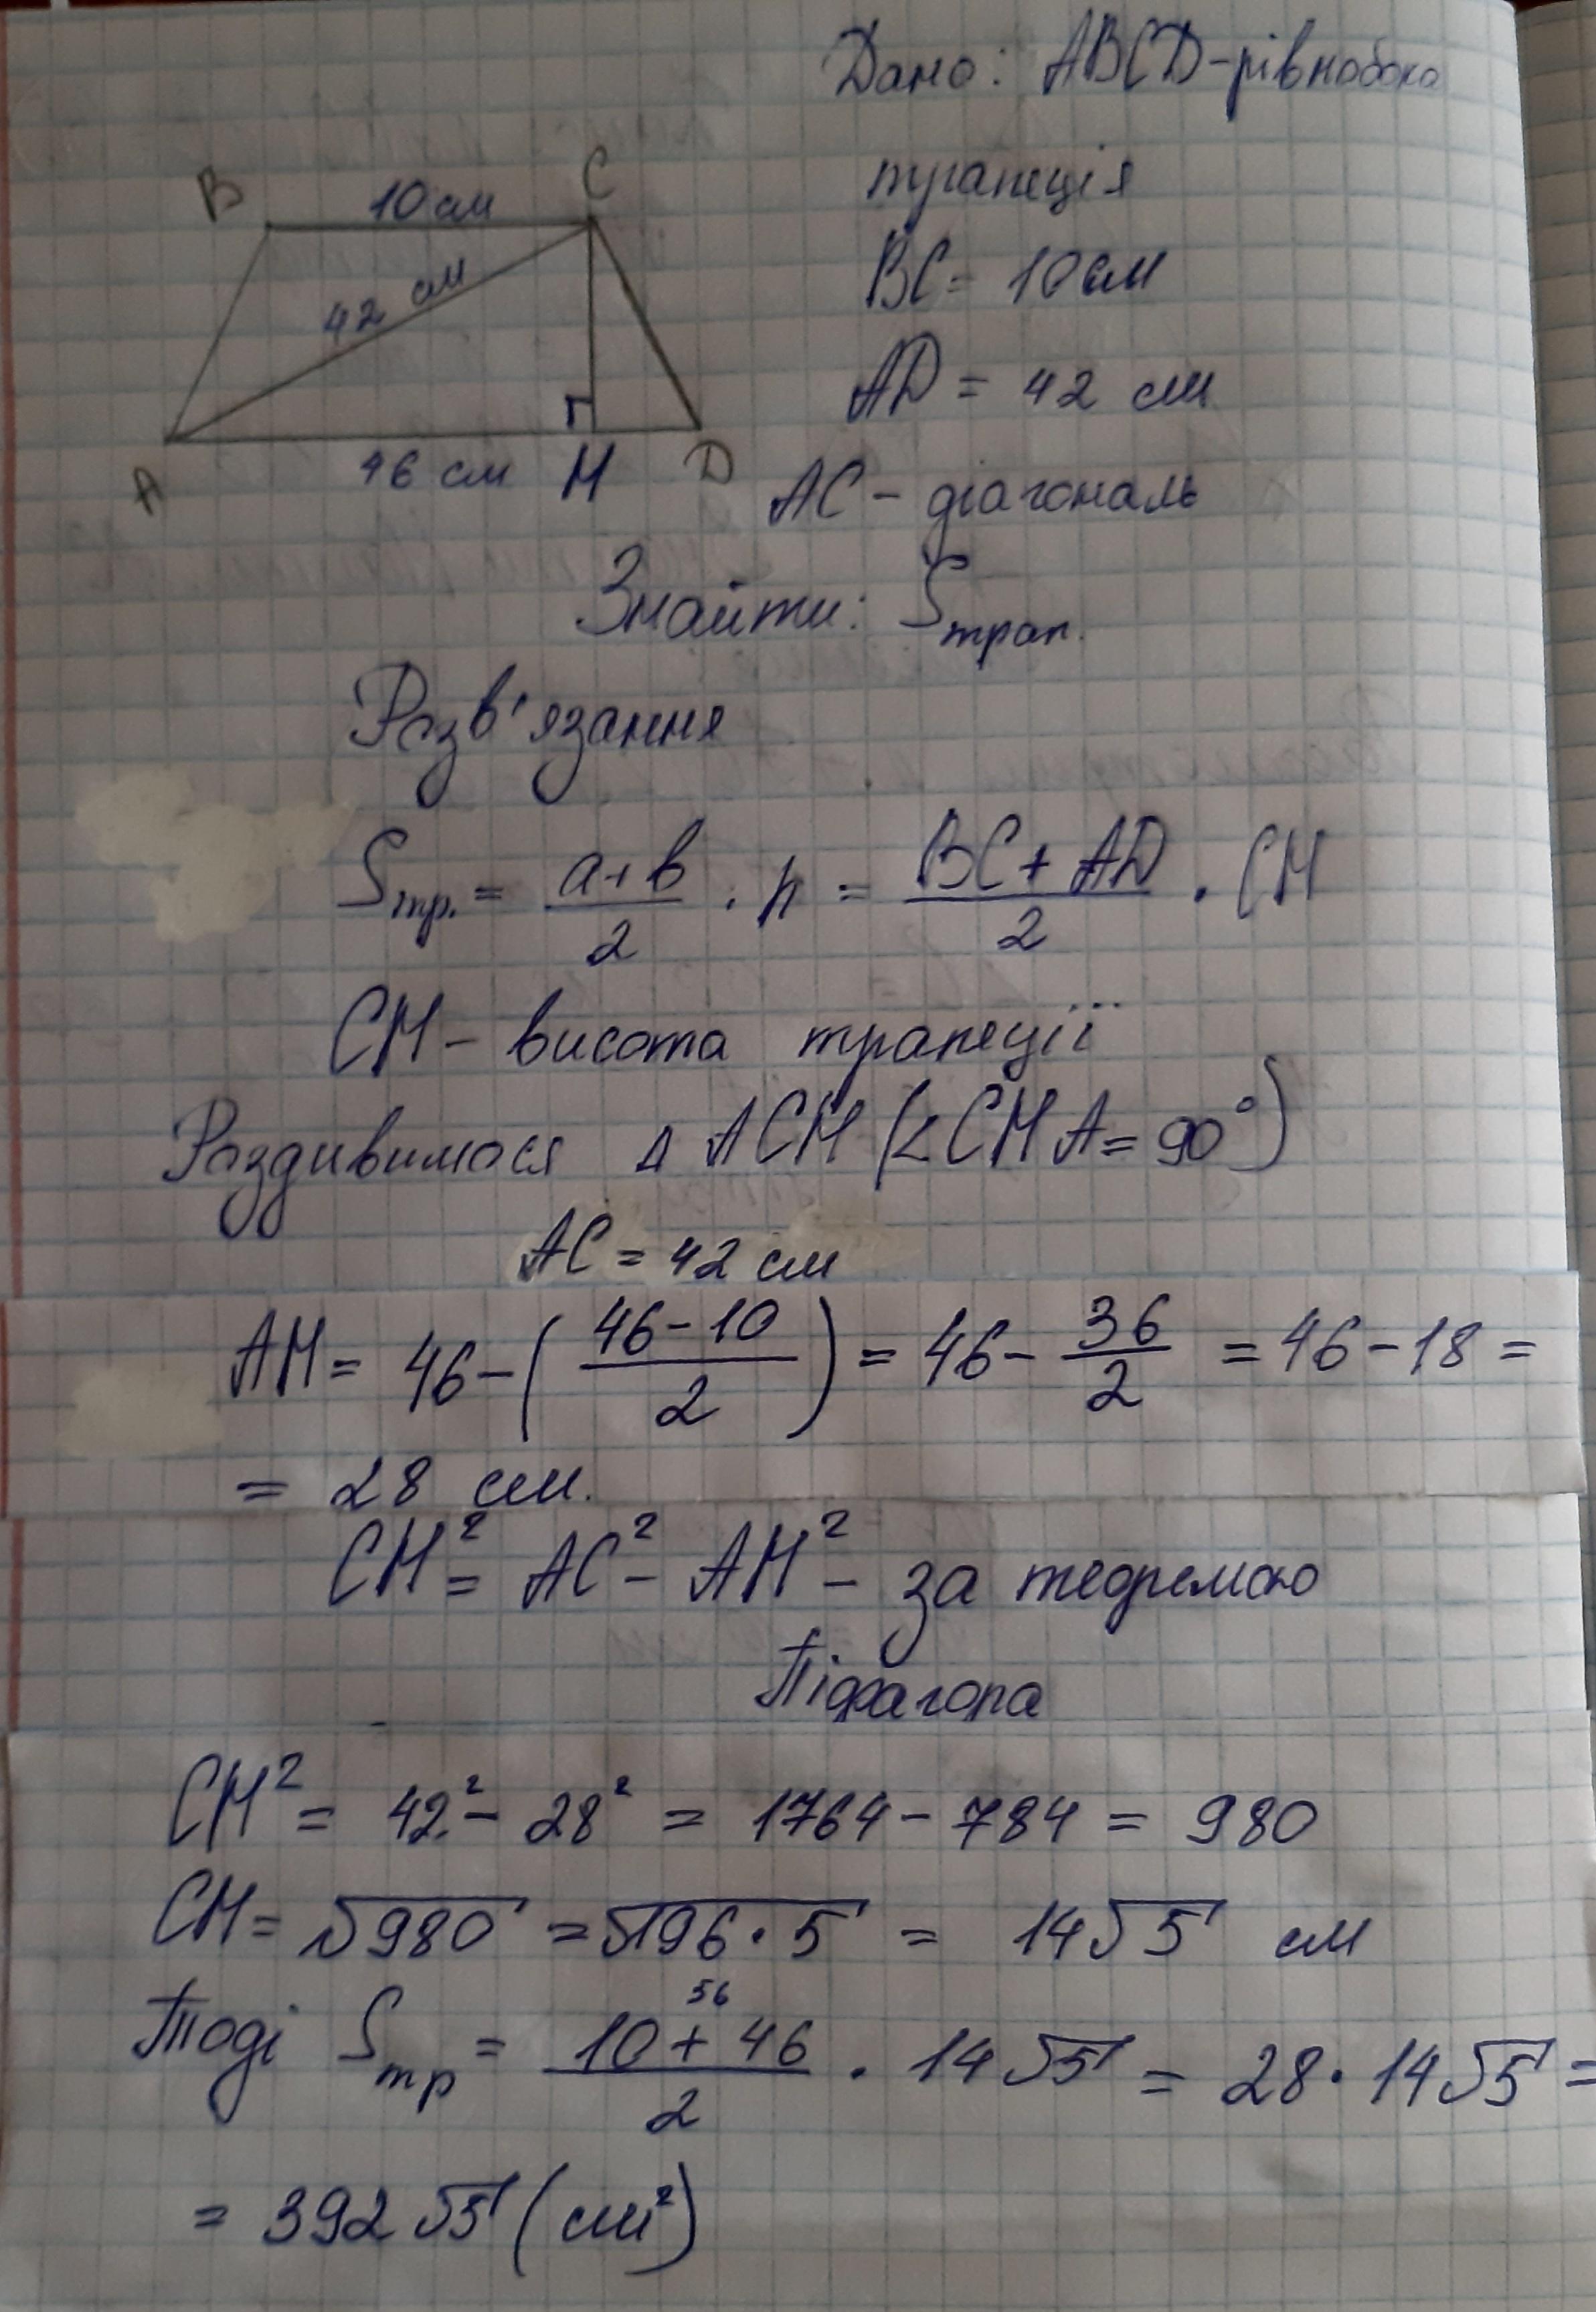 Дано: ABCD-рівнобока
трапеція
BC = 10 см
AD = 42 см
AC - діагональ
B
10 см
C
42 см
A
46 см
M
D
Знайти: Sтрап.
Розв'язання
Sтр. = (a+b)/2 · h = (BC + AD)/2 · CM
CM - висота трапеції
Роздивимося Δ ACM (∠CMA = 90°)
AC = 42 см
AM = 46 - ((46-10)/2) = 46 - 36/2 = 46 - 18 =
= 28 см.
CM² = AC² - AM² - за теоремою
Піфагора
CM² = 42² - 28² = 1764 - 784 = 980
CM = √980 = √196·5 = 14√5 см
56
Тоді Sтр = (10 + 46)/2 · 14√5 = 28 · 14√5 =
= 392√5 (см²)